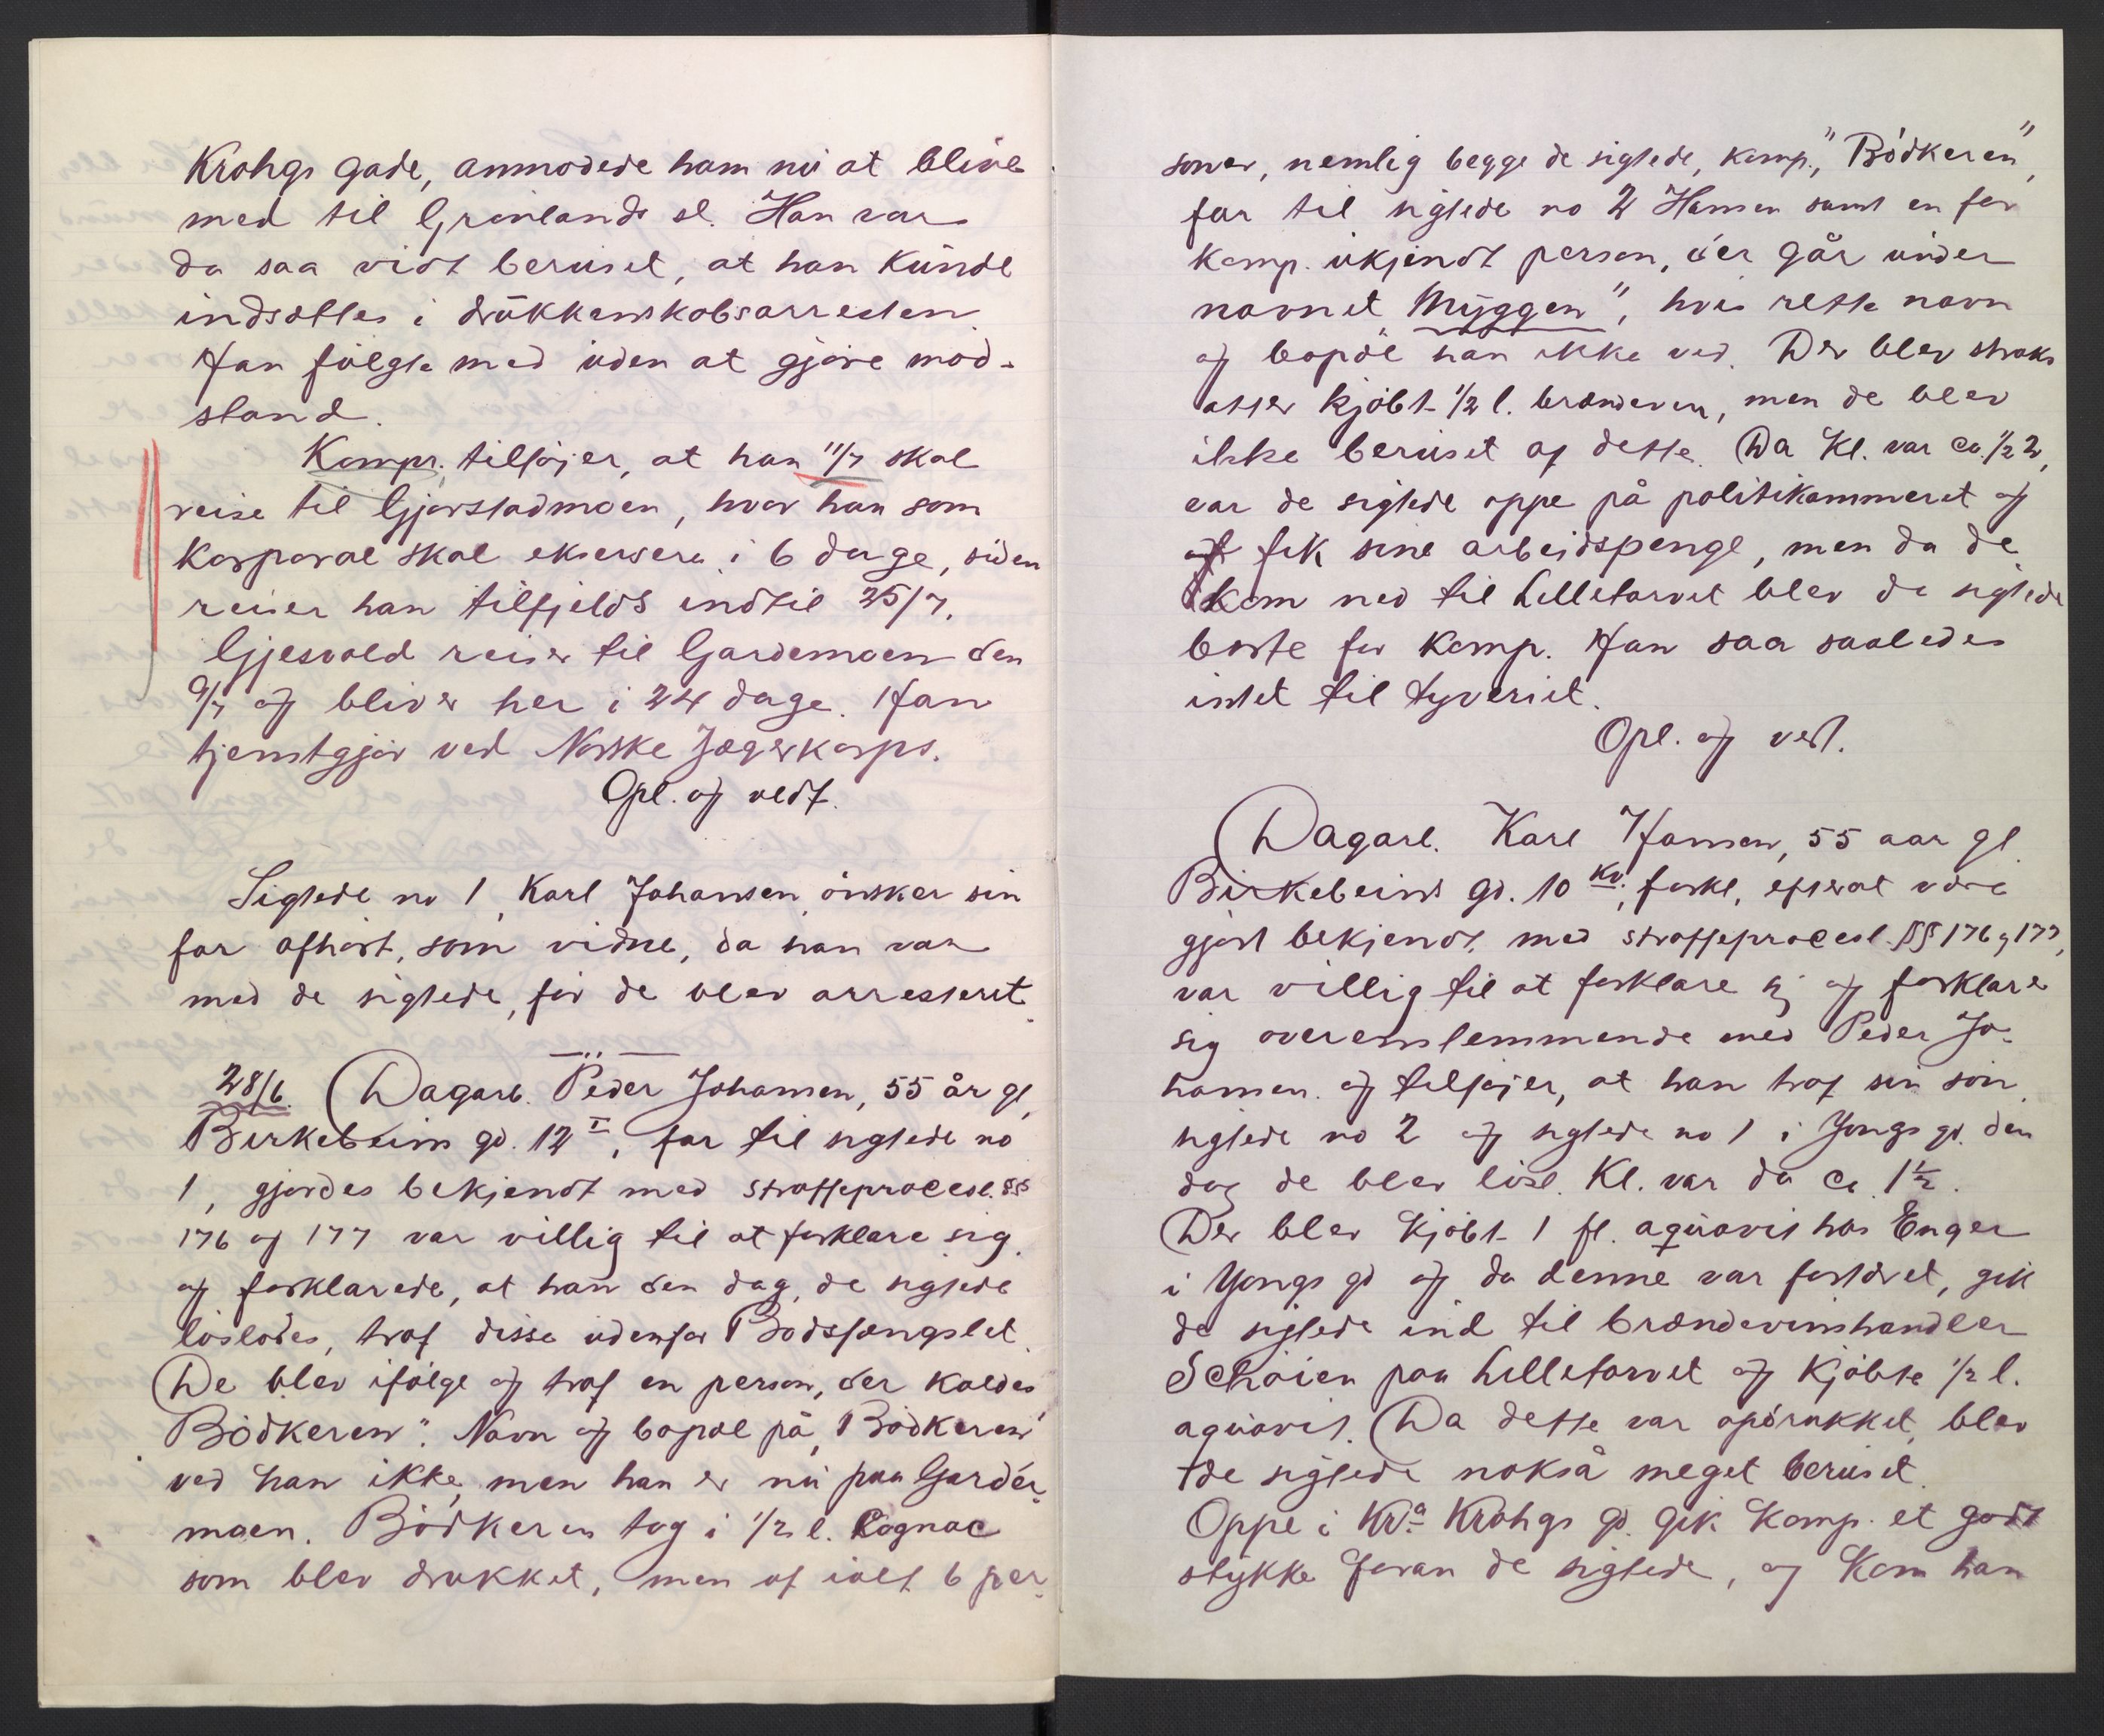 Krohgs gade, anmodede ham nu at blive
med til Grønlands st. Han var
da saa vidt beruset, at han kunde
indsættes i drukkenskabsarresten.
Han fulgte med uden at gjøre mod-
stand.
Kompr. tilføjer, at han 11/7 skal
reise til Gjørstadmoen, hvor han som
korporal skal eksersere i 6 dage, siden
reiser han tilfjelds indtil 25/7.
Gjesvold reiser til Gardemoen den
9/7 og bliver her i 24 dage. Han
tjenstgjør ved Norske Jægerkorps.
Opl. og vedt.
Sigtede no 1, Karl Johansen ønsker sin
far afhørt, som vidne, da han var
med de sigtede, før de blev arresteret.
28/6. Dagarb. Peder Johansen, 55 år gl,
Birkebeins gd. 12 I, far til sigtede no
1, gjordes bekjendt med straffeprocesl. §§
176 og 177 var villig til at forklare sig.
og forklarede, at han den dag, de sigtede
løslodes, traf disse udenfor Bodsfængslet.
De blev ifølge og traf en person, der kaldes
Bødkeren". Navn og bopæl på "Bødkeren"
ved han ikke, men han er nu paa Garder-
moen. Bødkeren tog i 1/2 l. Cognac
som blev drukket, men af ialt 6 per-
soner, nemlig begge de sigtede, komp., "Bødkeren",
far til sigtede no 2 Hansen samt en for
komp. ukjendt person, der går under
navnet Myggen", hvis rette navn
og bopæl han ikke ved. Der blev straks
atter kjøbt 1/2 l. brændevin, men de blev
ikke beruset af dette. Da Kl. var ca. 1/2 2,
var de sigtede oppe på politikammeret og
fik sine arbeidspenge, men da de
kom ned til Lilletorvet blev de sigtede
borte for komp. Han saa saaledes
intet til tyveriet.
Opl. og vedt.
Dagarb. Karl Hansen, 55 aar gl.
Birkebeins gd. 10 kv., forkl, efterat være
gjort bekjendt med straffeprocesl. §§ 176 og 177,
var villig til at forklare sig og forklarer
sig overenstemmende med Peder Jo-
hansen og tilføjer, at han traf sin søn,
sigtede no 2 og sigtede no 1 i Yongs gd. den
dag de blev løsl. Kl. var da ca. 1½.
Der blev kjøbt 1 fl. aquavit hos Enger
i Yongs gd og da denne var fortæret, gik
de sigtede ind til brændevinshandler
Schøien paa Lilletorvet og kjøbte 1/2 l.
aquavit. Da dette var opdrukket, blev
de sigtede nokså meget beruset.
Oppe i Kra Krohgs gd. gik komp. et godt
stykke foran de sigtede, og kom han